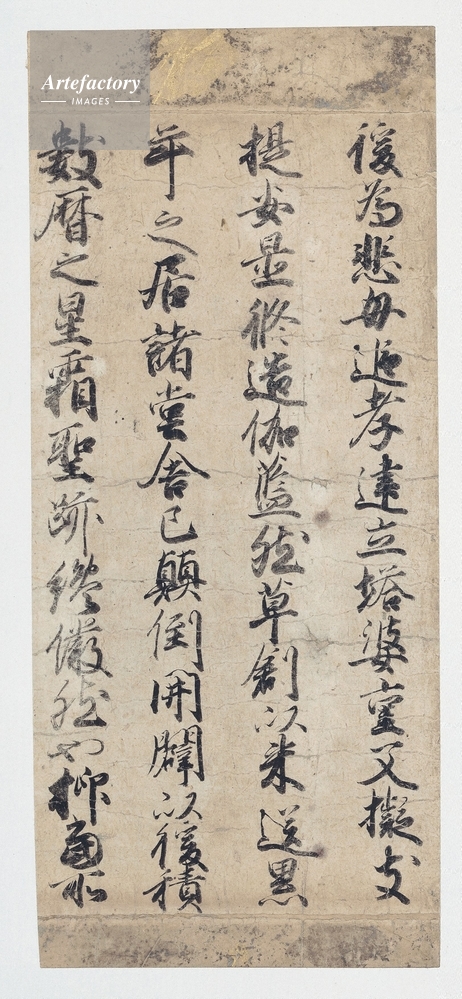 Artefactory
IMAGES
後為悲母追孝建立塔婆重又擬支
提如是修造伽藍然草創以来送累
年之居諸堂舎已顛倒開闢以後積
数暦之星霜聖跡纔儼然也抑當所